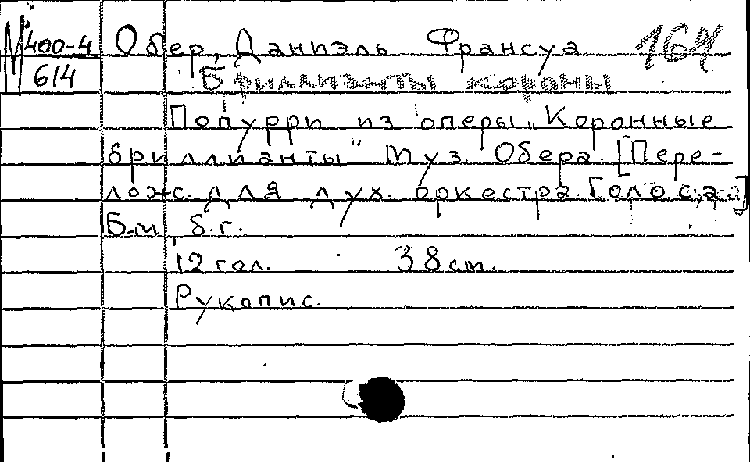 М 400-4
614
Обер, Даниэль Франсуа
Бриллианты короны
Попурри из оперы „Коронные
бриллианты" Муз. Обера. [Пере-
лож. для дух. оркестра. Голоса]
Б.м., б.г.
12 гол. 38 cm.
Рукопис.